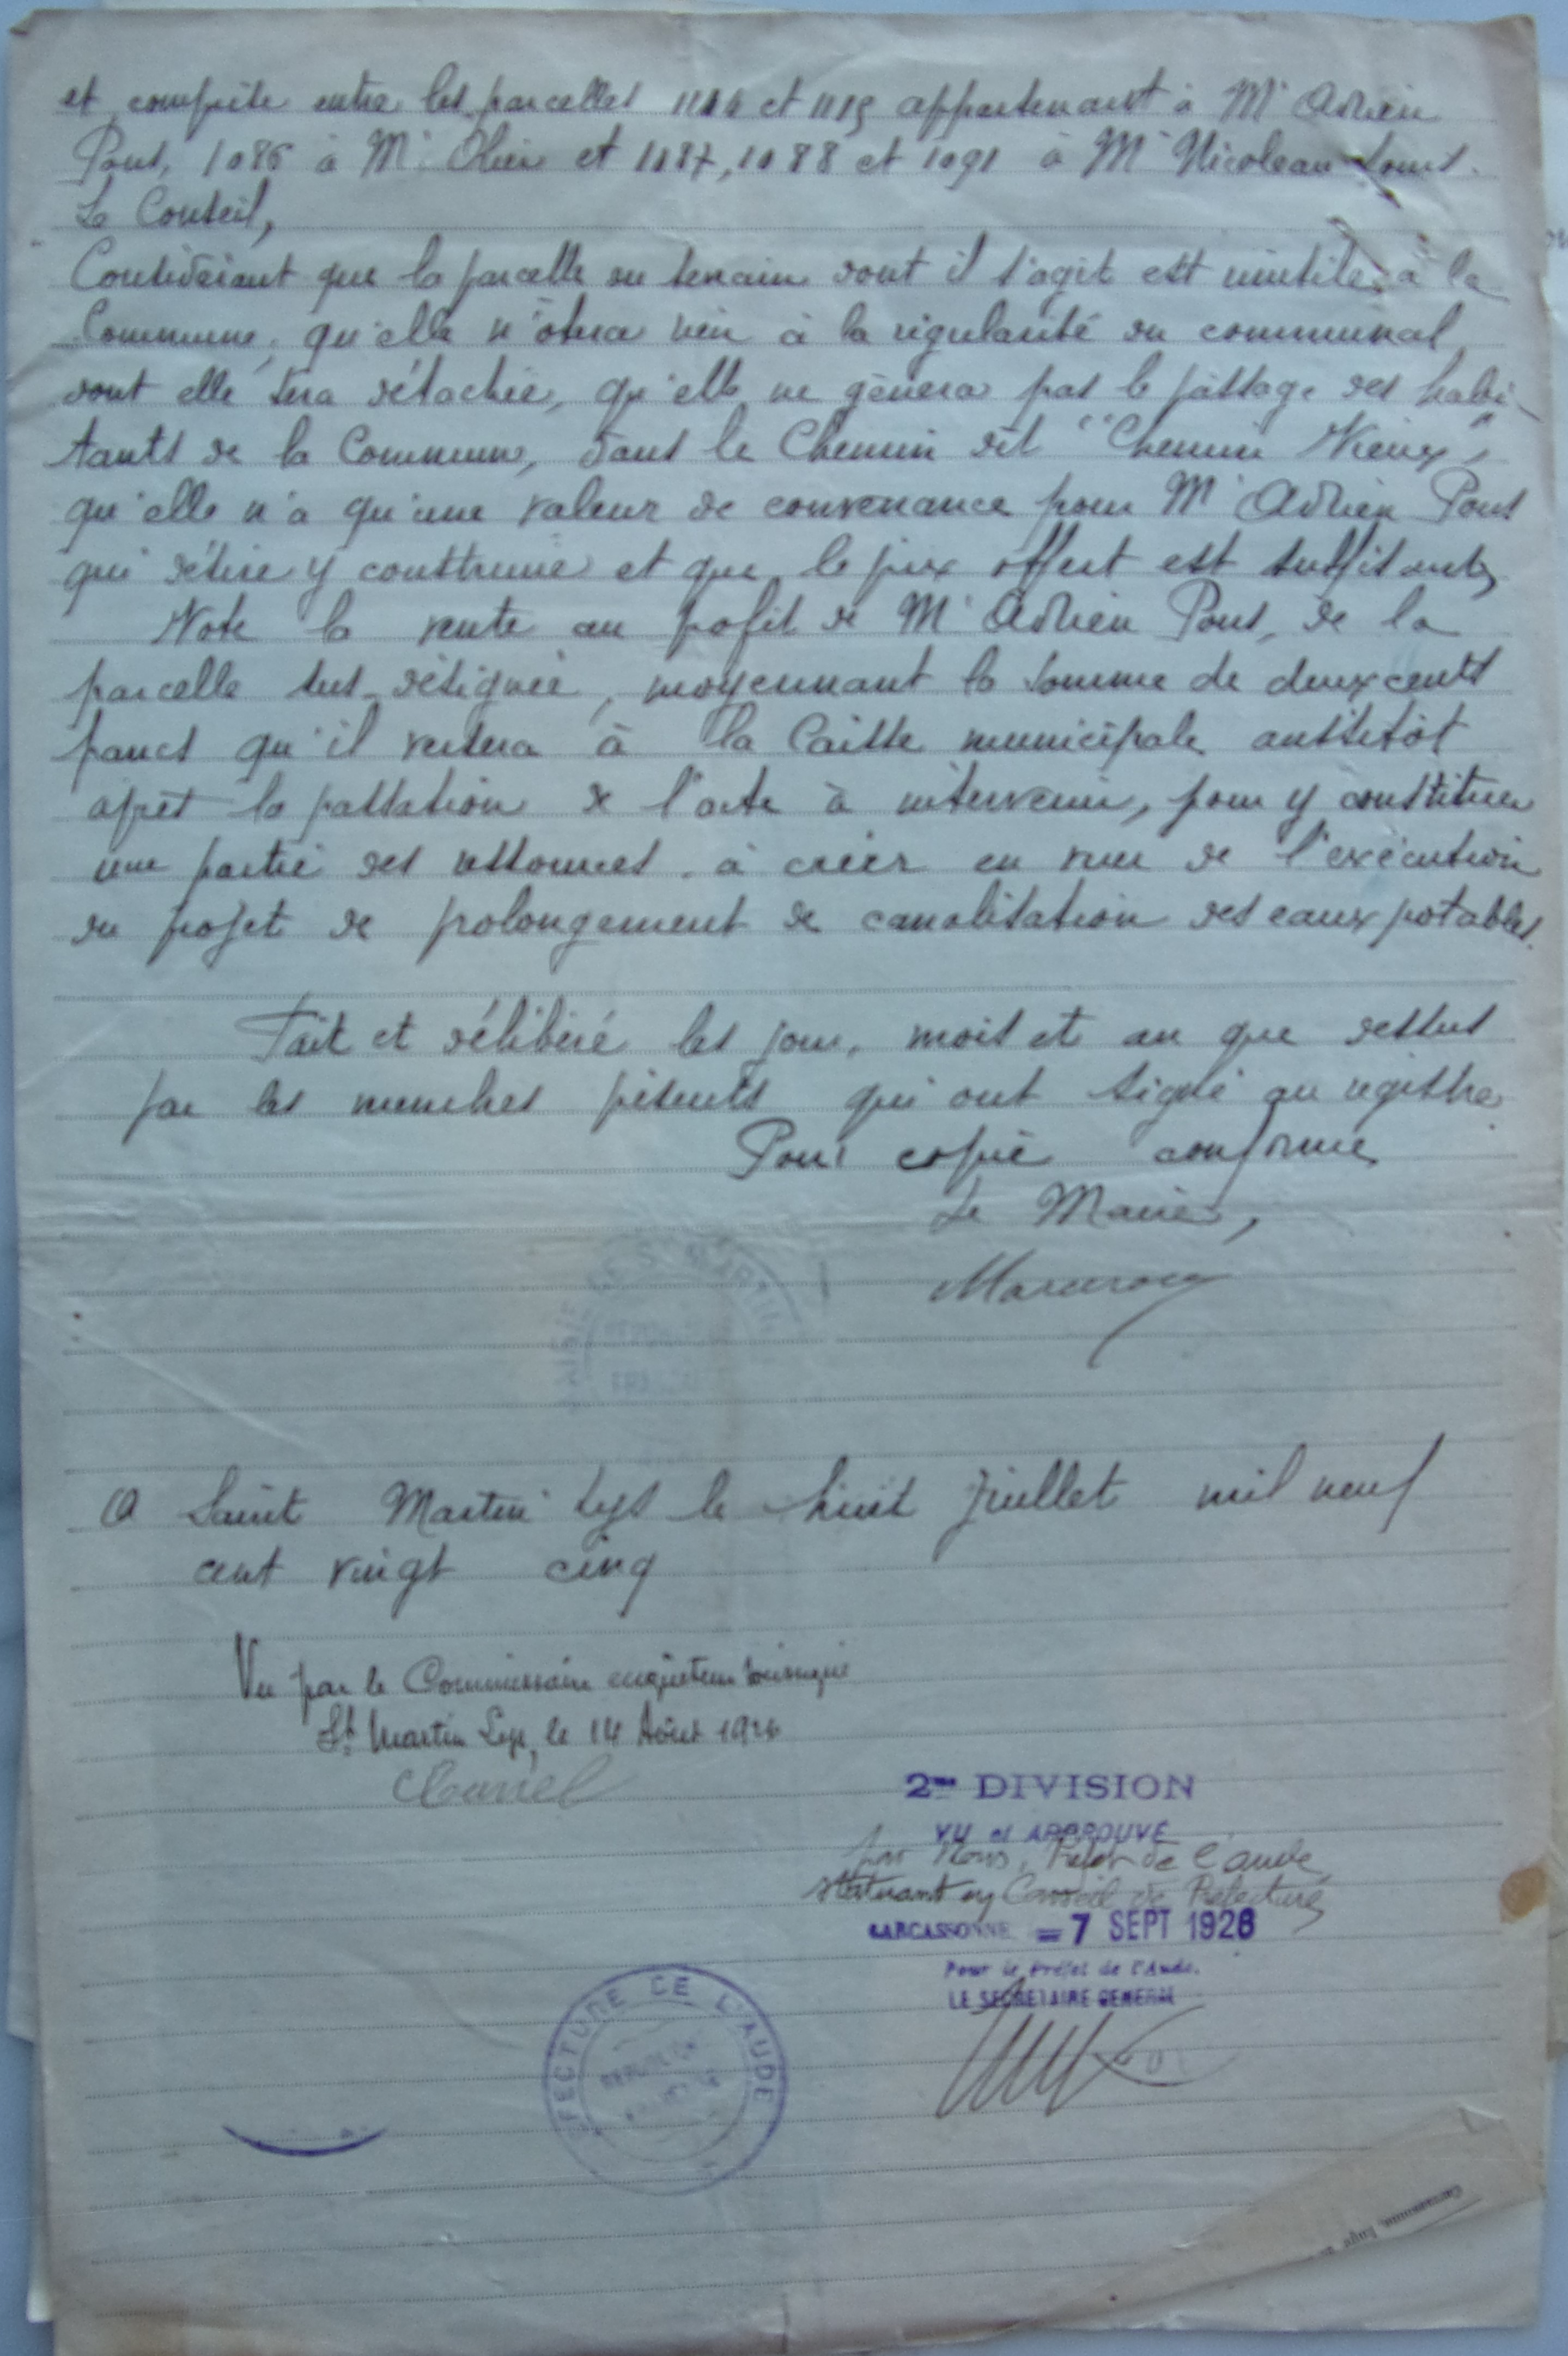 et comprise entre les parcelles 1114 et 1115 appartenant à Mr Adrien
Pons, 1086 à Mr Olier et 1087, 1088 et 1091 à Mr Nicoleau Louis.
Le Conseil,
Considérant que la parcelle du terrain dont il s'agit est inutile à la
Commune, qu'elle n'ôtera rien à la régularité du communal
dont elle sera détachée, qu'elle ne gènera pas le passage des habi-
tants de la Commune, dans le Chemin dit "Chemin Vieux",
qu'elle n'a qu'une valeur de convenance pour Mr Adrien Pons
qui désire y construire et que le prix offert est suffisant,
Vote la vente au profit de Mr Adrien Pons, de la
parcelle sus-désignée, moyennant la somme de deux cents
francs qu'il versera à la Caisse municipale aussitôt
après la passation de l'acte à intervenir, pour y constituer
une partie des ressources à créer en vue de l'exécution
du projet de prolongement de canalisation des eaux potables.
Fait et délibéré les jour, mois et an que dessus
par les membres présents qui ont signé au registre
Pour copie conforme
Le Maire,
MAIRIE DE ST MARTIN
A Saint Martin Lys le huit juillet mil neuf
cent vingt cinq
Vu par le Commissaire enquêteur soussigné
St Martin Lys, le 14 Août 1926
2me DIVISION
VU et APPROUVÉ
par Nous, Préfet de l'Aude,
statuant en Conseil de Préfecture
CARCASSONNE = 7 SEPT 1926
Pour le Préfet de l'Aude.
LE SECRETAIRE GENERAL
FECTURE DE L'AUDE